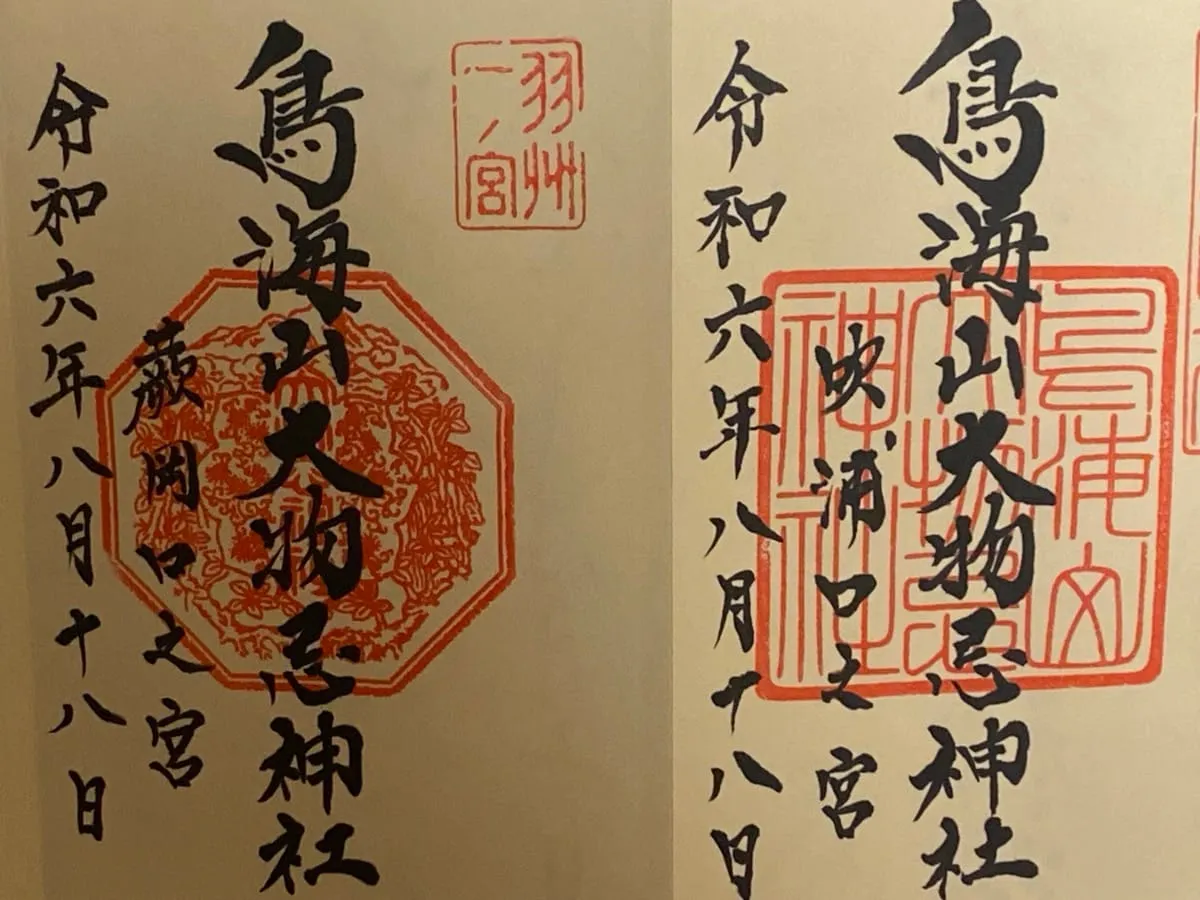 鳥海山大物忌神社
吹浦口之宮
令和六年八月十八日
神社
羽州
一ノ宮
鳥海山大物忌神社
蕨岡口之宮
令和六年八月十八日